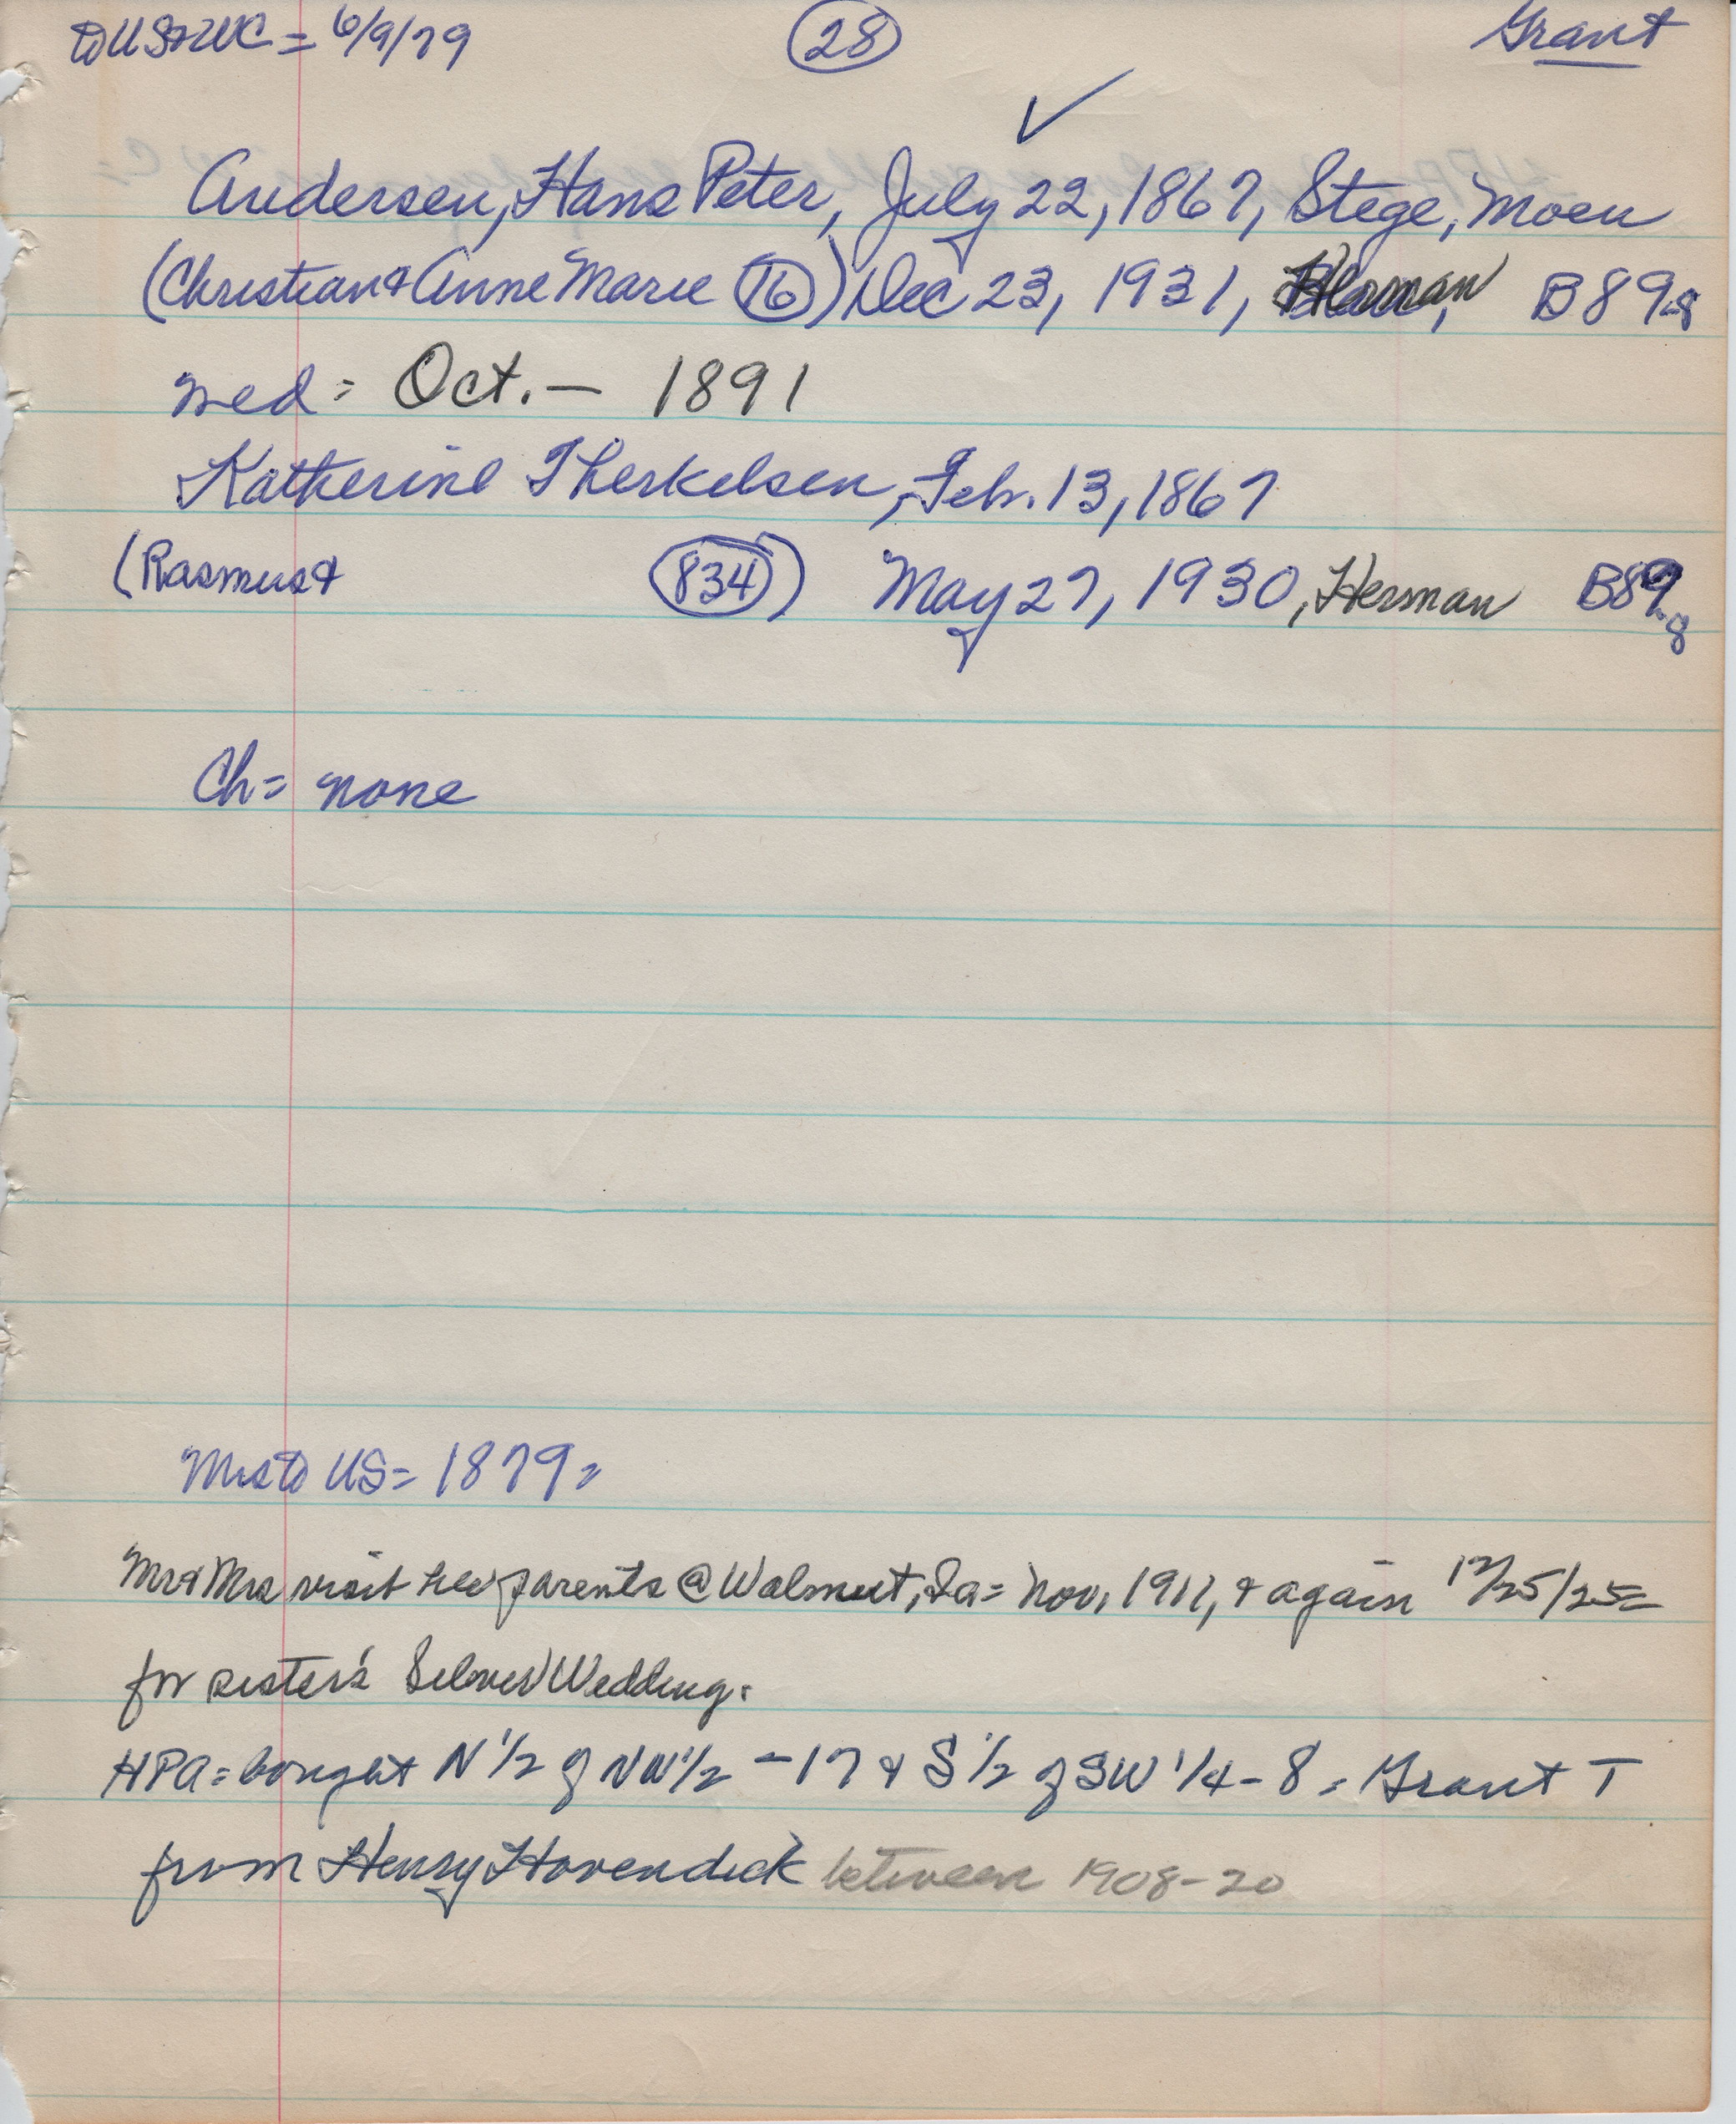 to US & WC = 6/9/79
28
Grant
✓
Andersen, Hans Peter, July 22, 1867, Stege, Moen
(Christian & Anne Marie 16) Dec 23, 1931, Herman, B89-8
wed = Oct. — 1891
Katherine Therkelsen, Feb. 13, 1867
(Rasmus & 834) May 27, 1930, Herman B89-8
Ch = none
Mrs to US = 1879 =
Mr & Mrs visit her parents @ Walnut, Ia = Nov, 1911, & again 12/25/25 =
for sister's Silver Wedding.
HPA = bought N 1/2 of NW 1/2 - 17 & S 1/2 of SW 1/4 - 8 = Grant T
from Henry Hovendick between 1908-20